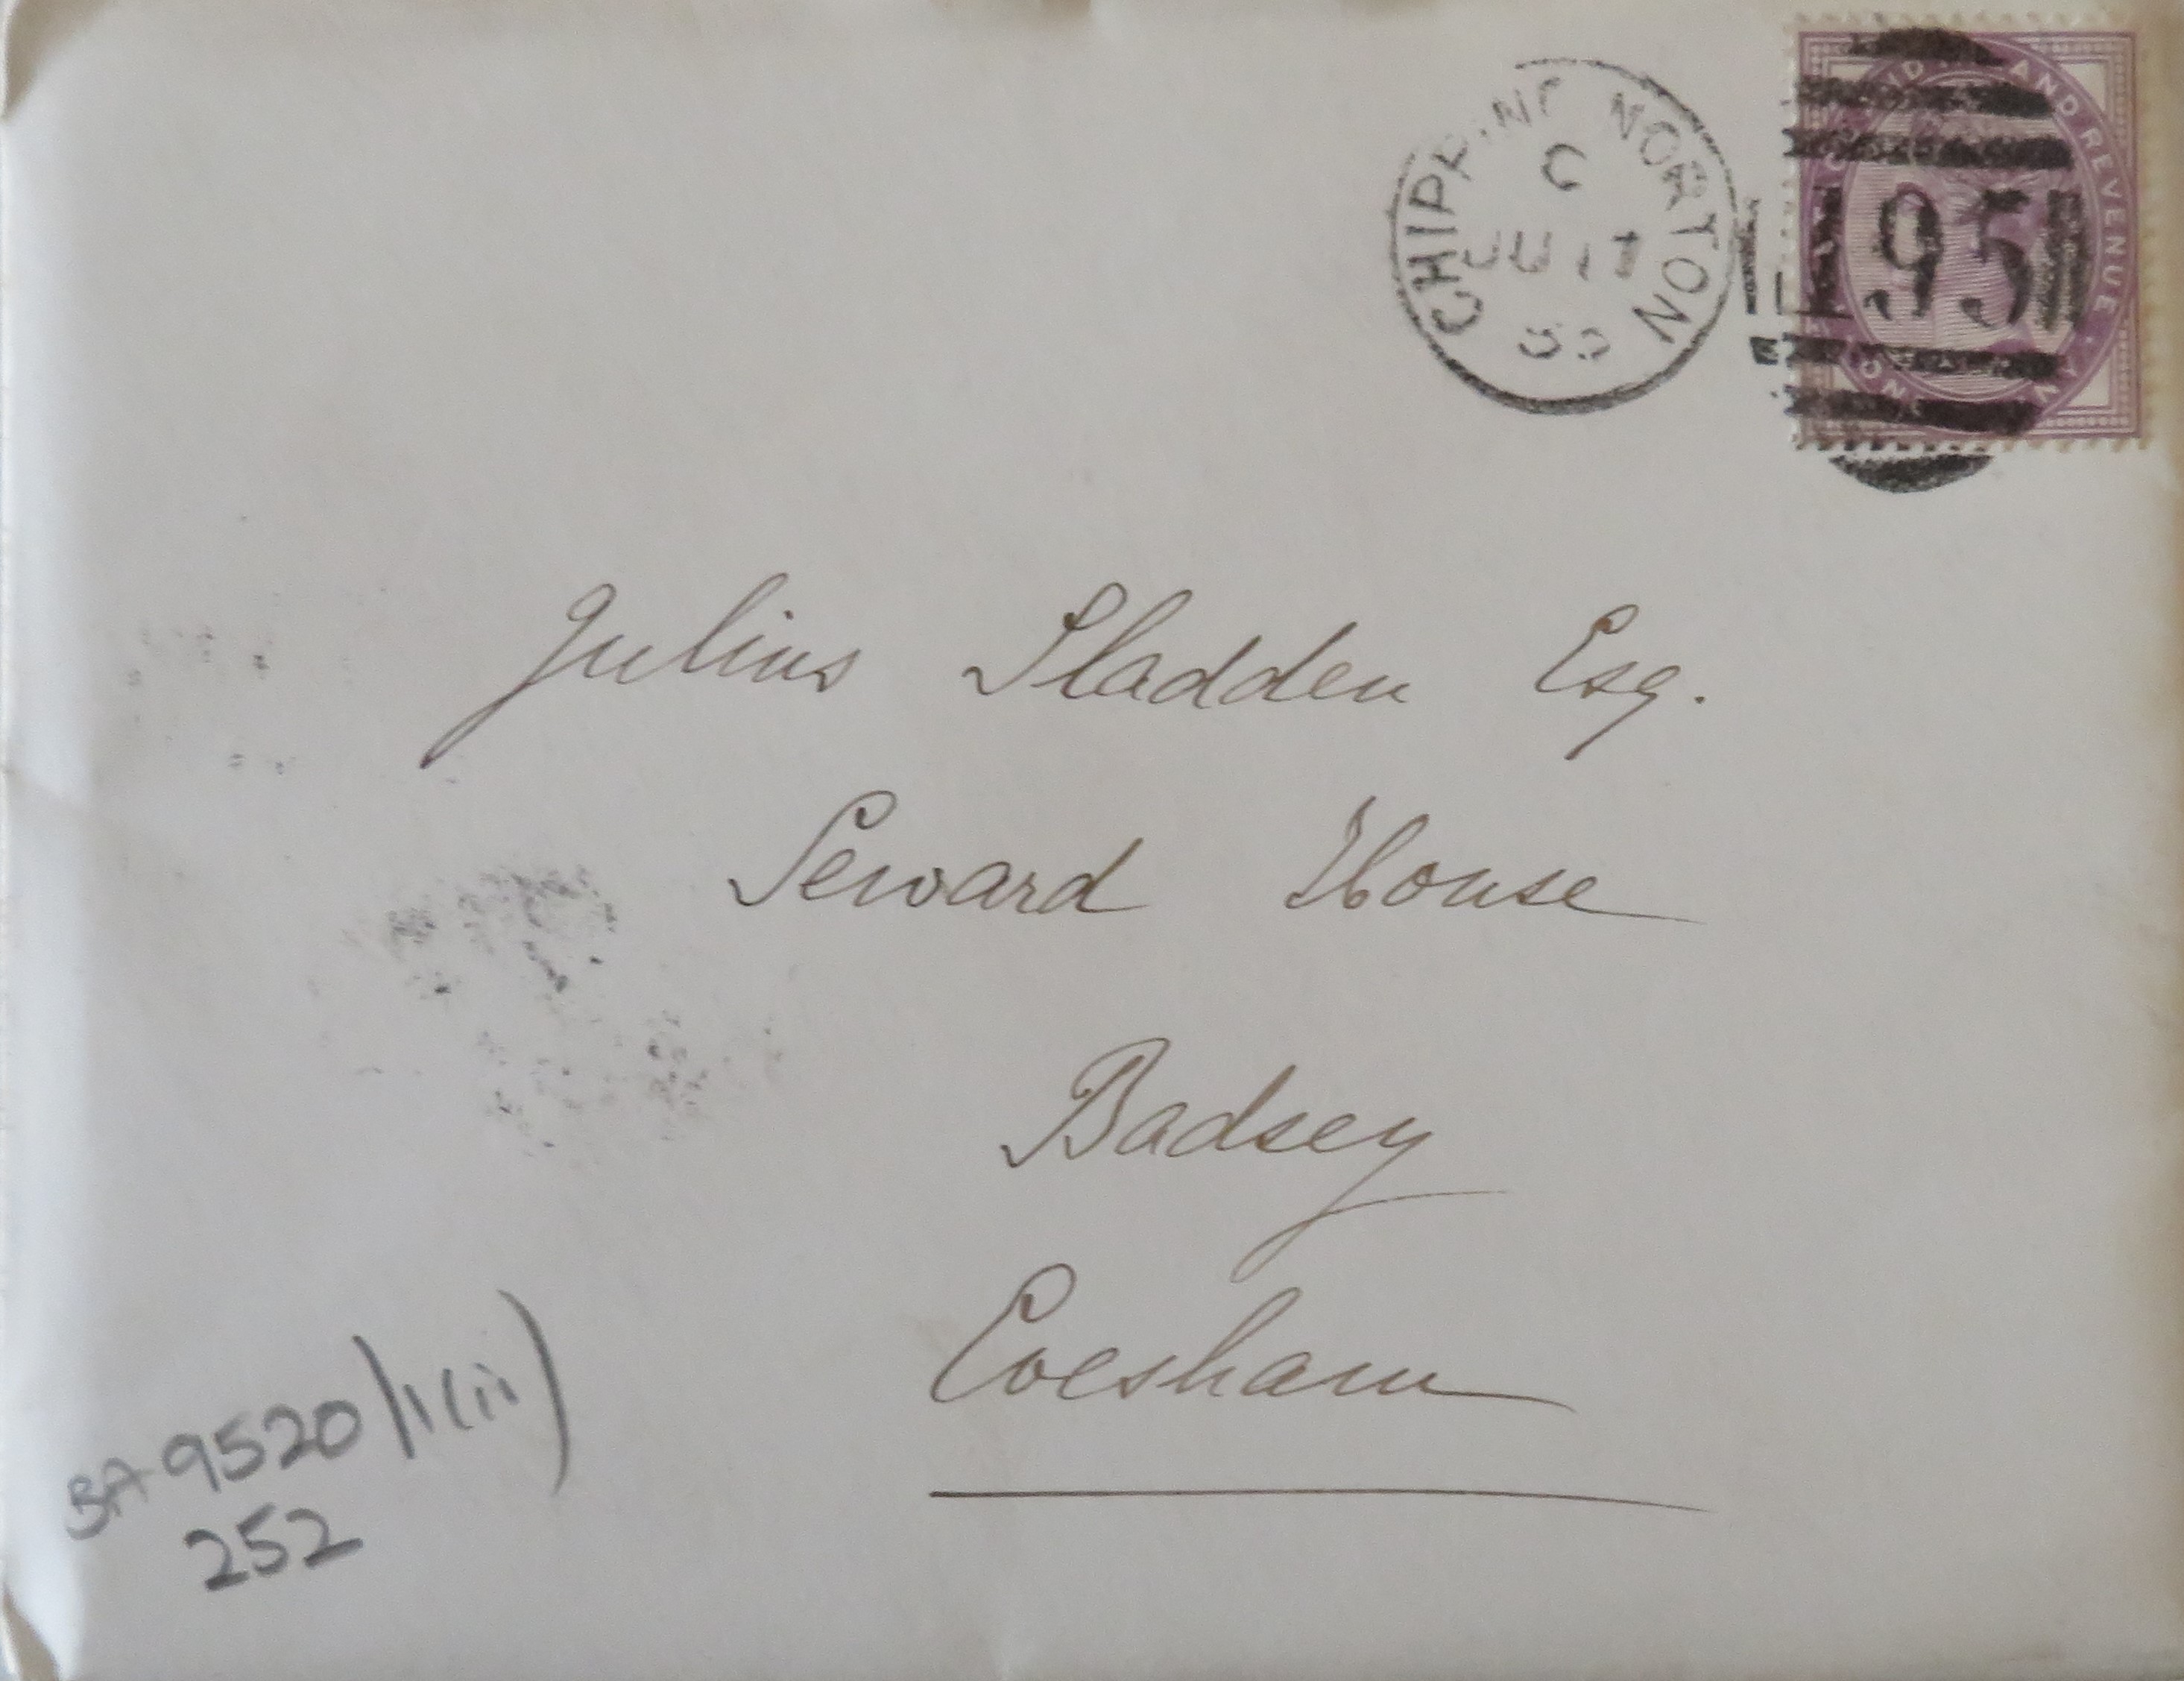 CHIPPING NORTON
C
JU 17
195
AND REVENUE
Julius Sladden Esq.
Seward House
Badsey
Evesham
BA 9520/1(ii)
252